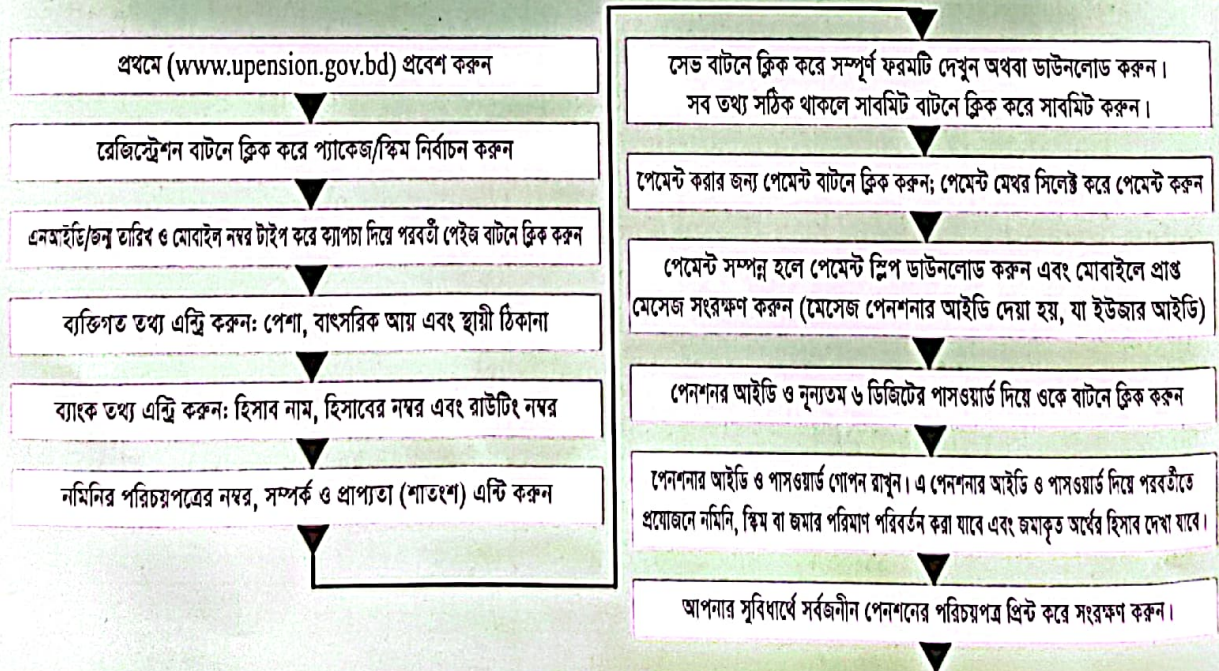 প্রথমে (www.upension.gov.bd) প্রবেশ করুন
রেজিস্ট্রেশন বাটনে ক্লিক করে প্যাকেজ/স্কিম নির্বাচন করুন
এনআইডি/জন্ম তারিখ ও মোবাইল নম্বর টাইপ করে ক্যাপচা দিয়ে পরবর্তী পেইজ বাটনে ক্লিক করুন
ব্যক্তিগত তথ্য এন্ট্রি করুন: পেশা, বাৎসরিক আয় এবং স্থায়ী ঠিকানা
ব্যাংক তথ্য এন্ট্রি করুন: হিসাব নাম, হিসাবের নম্বর এবং রাউটিং নম্বর
নমিনির পরিচয়পত্রের নম্বর, সম্পর্ক ও প্রাপ্যতা (শাতংশ) এন্টি করুন
সেভ বাটনে ক্লিক করে সম্পূর্ণ ফরমটি দেখুন অথবা ডাউনলোড করুন।
সব তথ্য সঠিক থাকলে সাবমিট বাটনে ক্লিক করে সাবমিট করুন।
পেমেন্ট করার জন্য পেমেন্ট বাটনে ক্লিক করুন; পেমেন্ট মেথর সিলেক্ট করে পেমেন্ট করুন
পেমেন্ট সম্পন্ন হলে পেমেন্ট স্লিপ ডাউনলোড করুন এবং মোবাইলে প্রাপ্ত
মেসেজ সংরক্ষণ করুন (মেসেজ পেনশনার আইডি দেয়া হয়, যা ইউজার আইডি)
পেনশনর আইডি ও নূন্যতম ৬ ডিজিটের পাসওয়ার্ড দিয়ে ওকে বাটনে ক্লিক করুন
পেনশনার আইডি ও পাসওয়ার্ড গোপন রাখুন। এ পেনশনার আইডি ও পাসওয়ার্ড দিয়ে পরবর্তীতে
প্রয়োজনে নমিনি, স্কিম বা জমার পরিমাণ পরিবর্তন করা যাবে এবং জমাকৃত অর্থের হিসাব দেখা যাবে।
আপনার সুবিধার্থে সর্বজনীন পেনশনের পরিচয়পত্র প্রিন্ট করে সংরক্ষণ করুন।